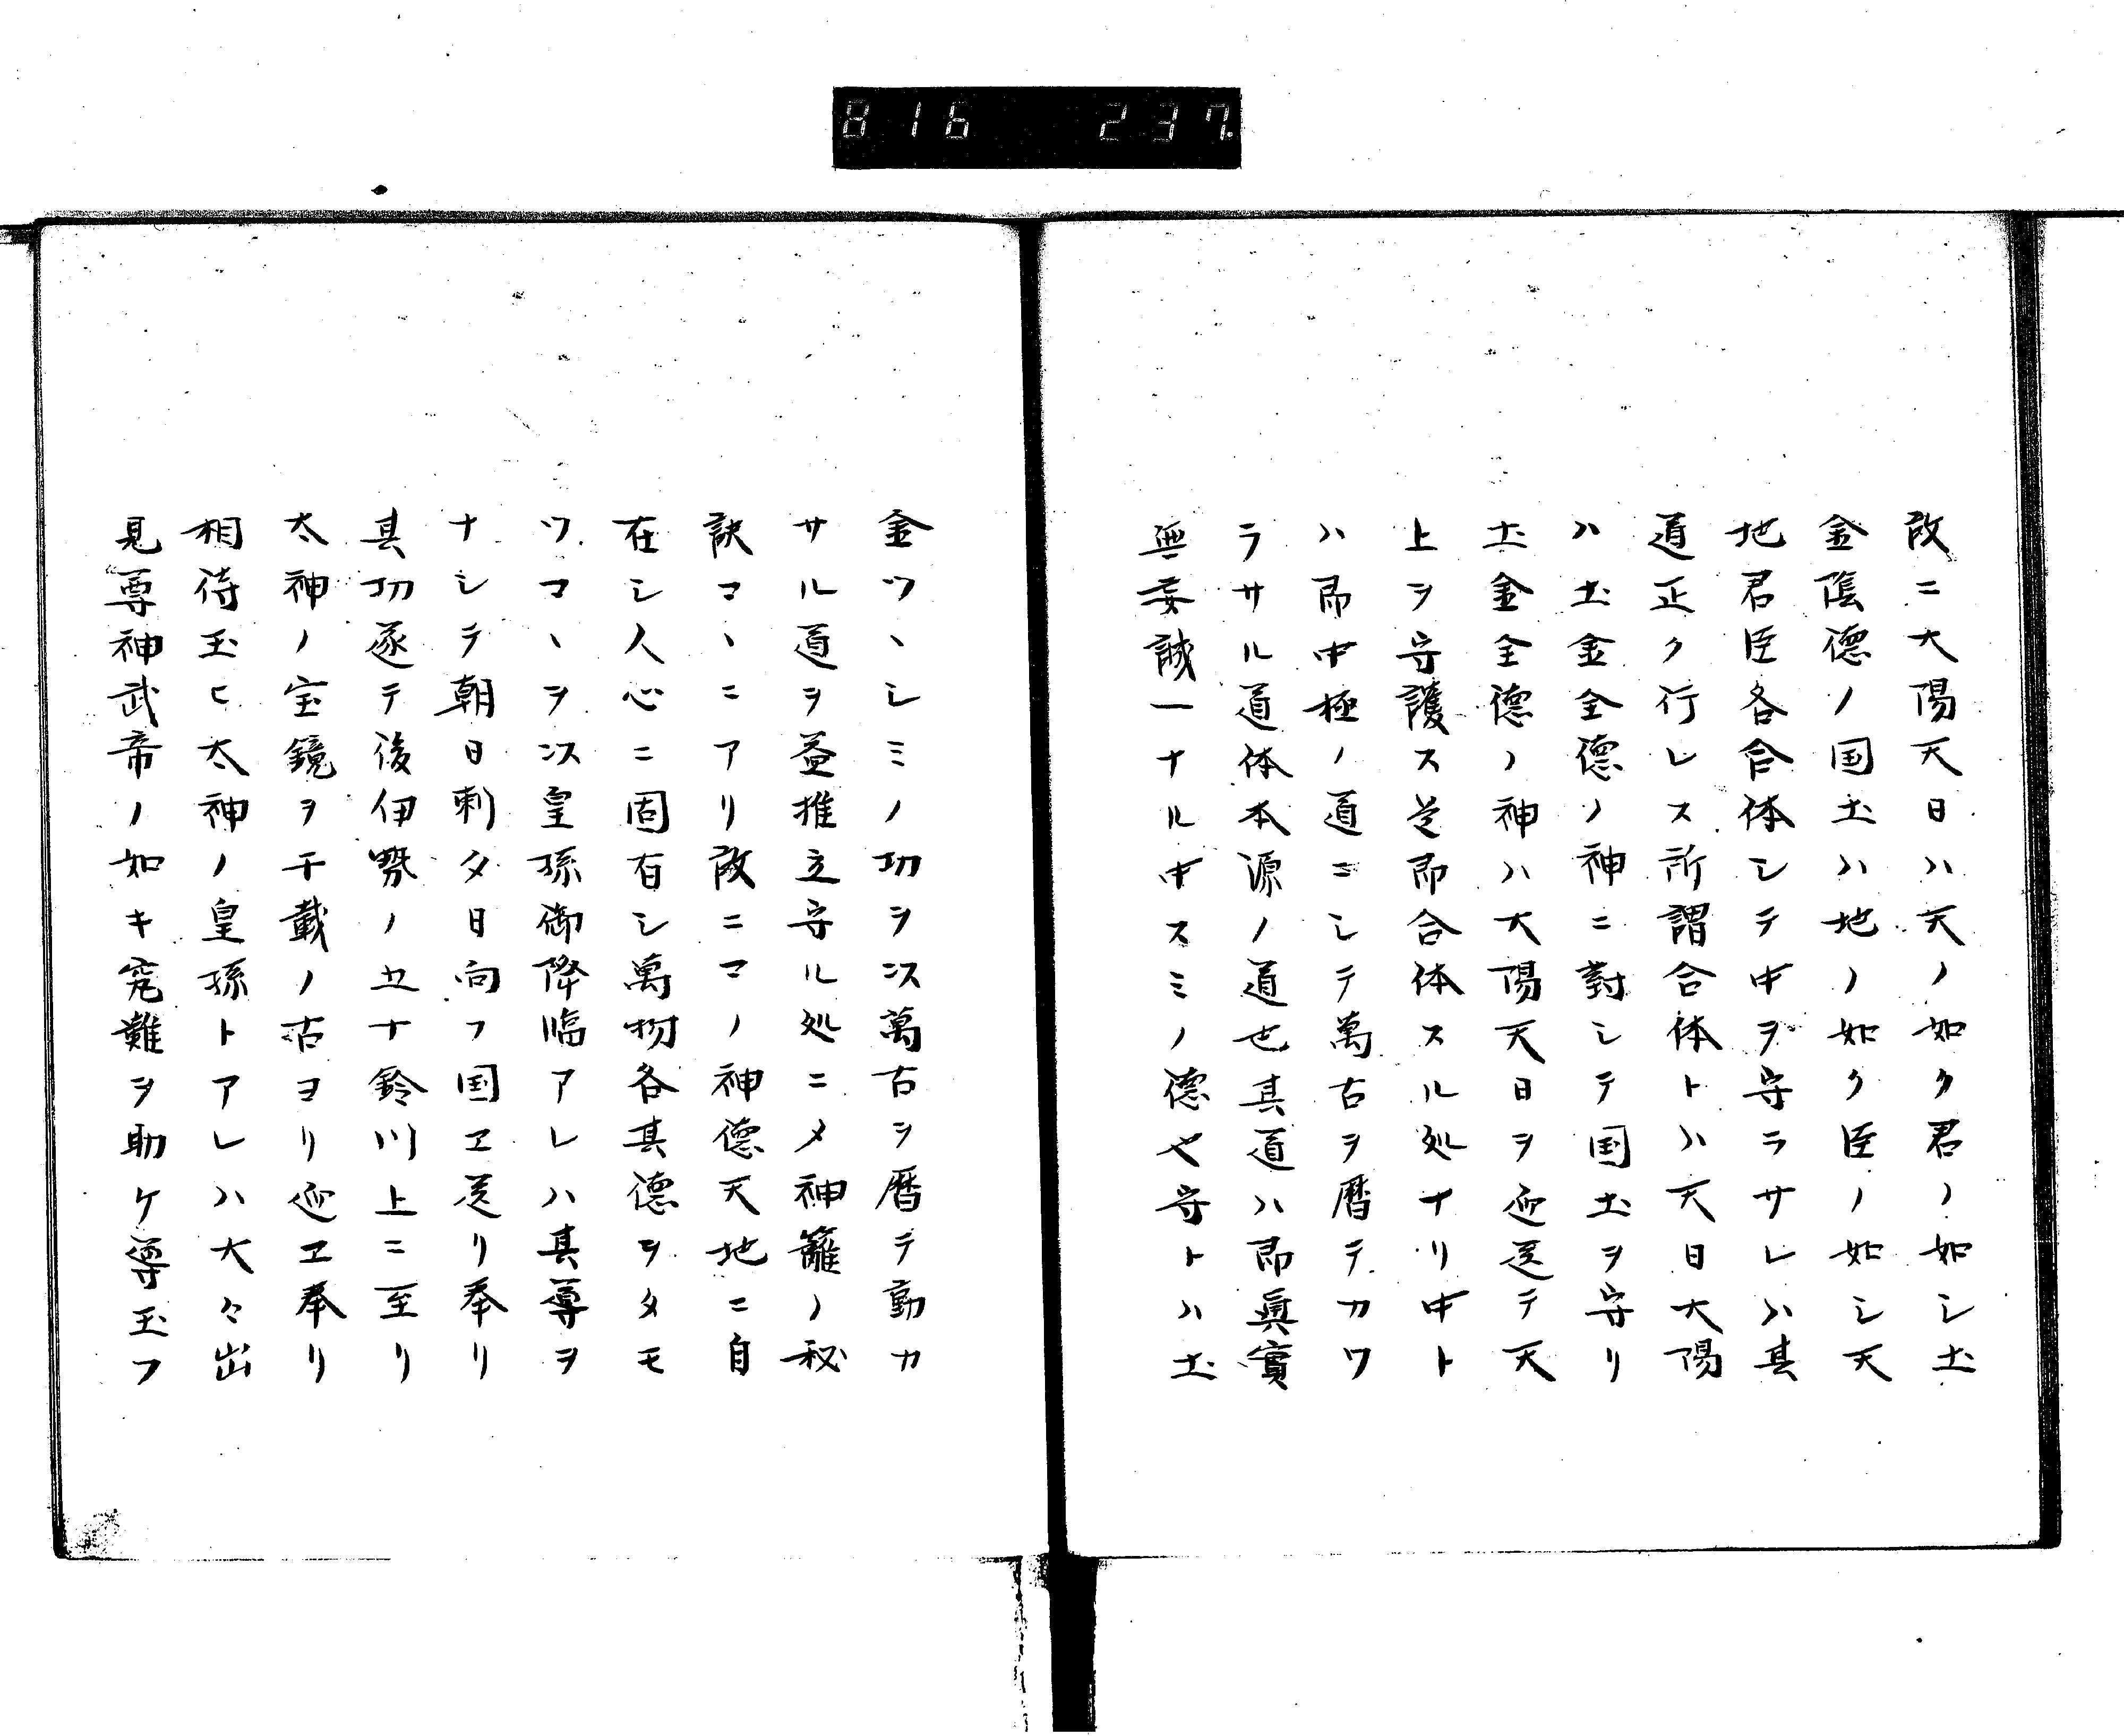 816 237
故ニ大陽天日ハ天ノ如ク君ノ如シ土
金陰徳ノ国土ハ地ノ如ク臣ノ如シ天
地君臣各合体シテ中ヲ守ラサレハ其
道正ク行レス所謂合体トハ天日大陽
ハ土金全徳ノ神ニ對シテ国土ヲ守リ
土金全徳ノ神ハ大陽天日ヲ迎送テ天
上ヲ守護ス是即合体スル処ナリ中ト
ハ即中極ノ道ニシテ萬古ヲ暦テカワ
ラサル道体本源ノ道也其道ハ即眞實
無妄誠一ナル中スミノ徳也守トハ土
金ツヽシミノ功ヲ以萬古ヲ暦テ動カ
サル道ヲ益推立守ル処ニメ神籬ノ秘
訣マヽニアリ故ニマノ神徳天地ニ自
在シ人心ニ固有シ萬物各其徳ヲタモ
ツマヽヲ以皇孫御降臨アレハ其導ヲ
ナシテ朝日刺夕日向フ国エ送リ奉リ
其功遂テ後伊勢ノ五十鈴川上ニ至リ
太神ノ宝鏡ヲ千載ノ古ヨリ迎エ奉リ
相待玉ヒ太神ノ皇孫トアレハ大々出
見尊神武帝ノ如キ窕難ヲ助ケ導玉フ